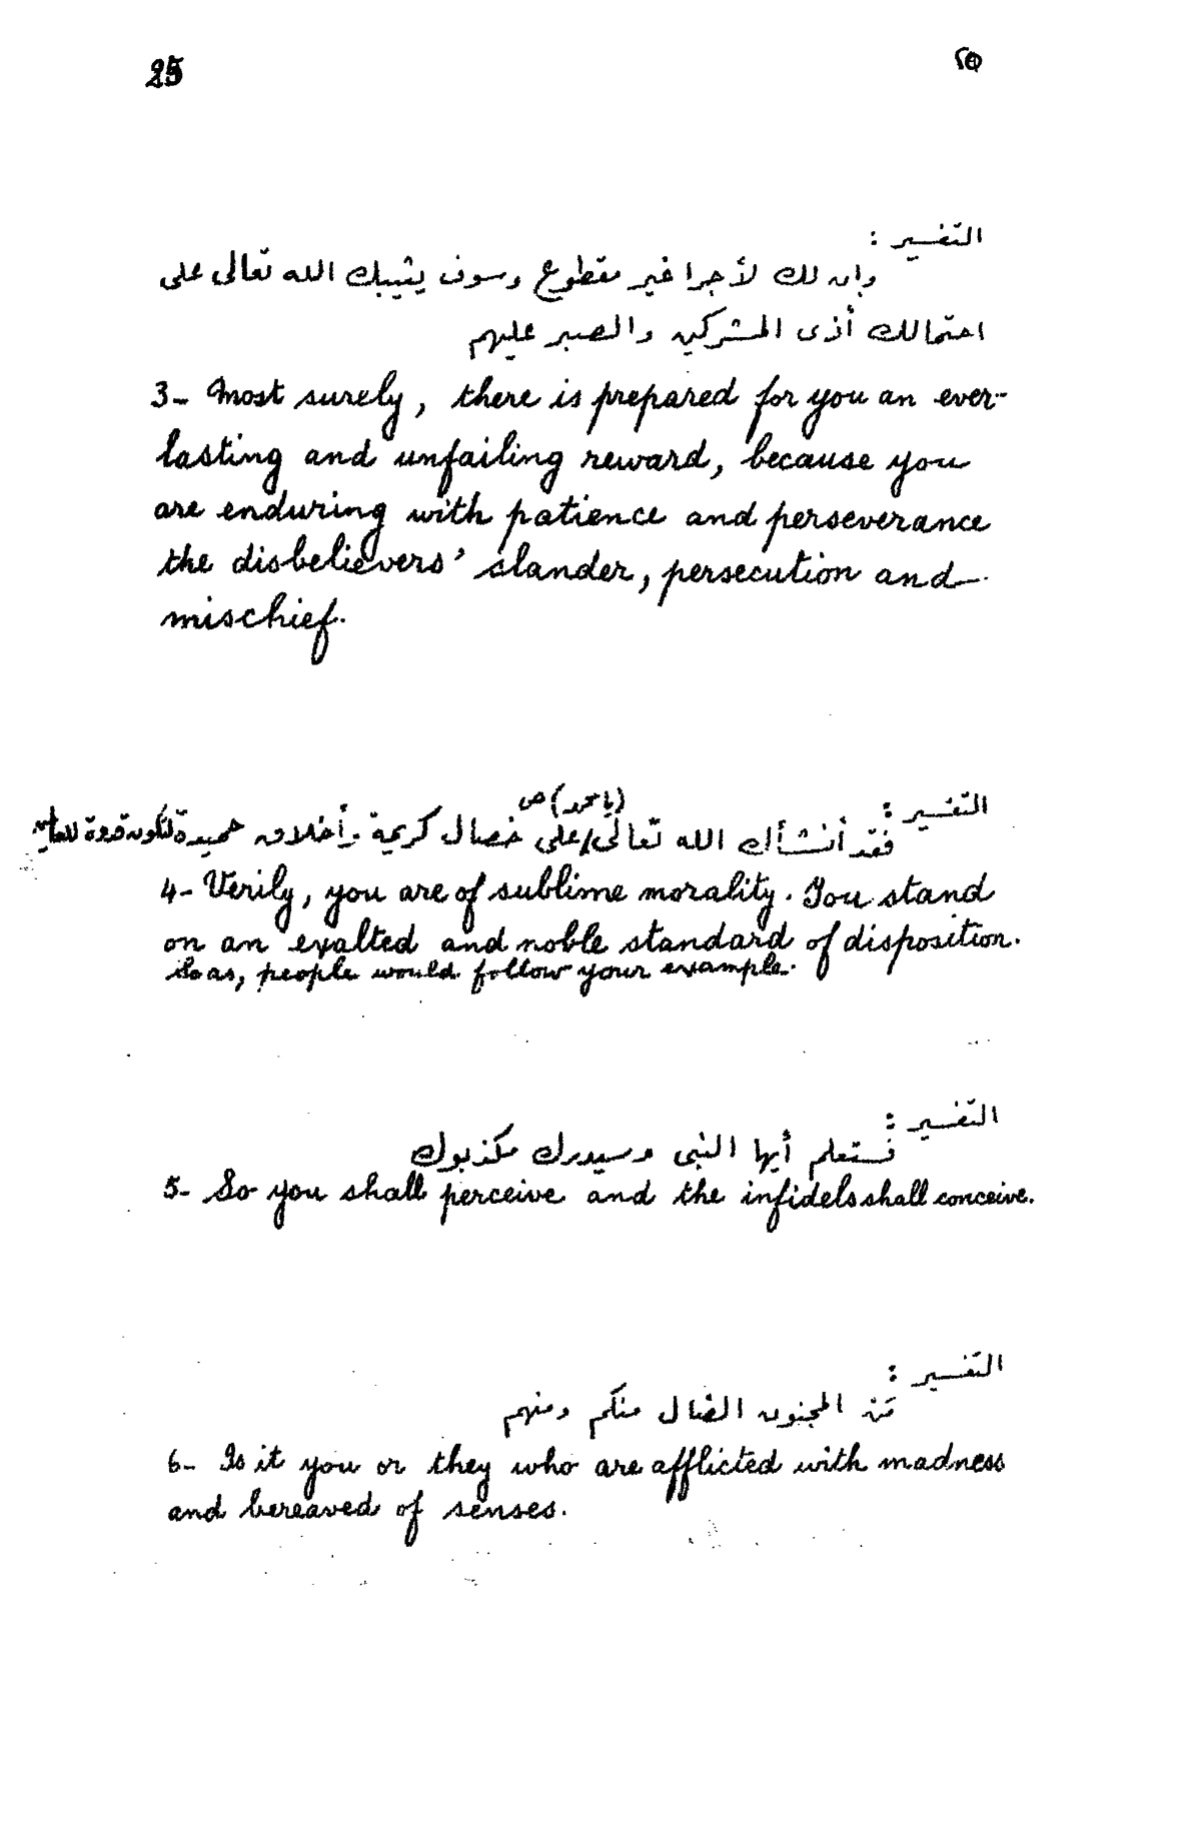 25
٢٥
التفسير :
وإن لك لأجرا غير مقطوع وسوف يثيبك الله تعالى على
احتمالك أذى المشركين والصبر عليهم
3- Most surely, there is prepared for you an ever-
lasting and unfailing reward, because you
are enduring with patience and perseverance
the disbelievers' slander, persecution and
mischief.
التفسير :
(يا محمد) ص
فقد أنشأك الله تعالى/على خصال كريمة وأخلاق حميدة لتكون قدوة
4- Verily, you are of sublime morality. You stand
on an exalted and noble standard of disposition.
So as, people would follow your example.
التفسير :
فستعلم أيها النبى وسيدرك مكذبوك
5- So you shall perceive and the infidels shall conceive.
التفسير :
مَن المجنون الضال منكم ومنهم
6- Is it you or they who are afflicted with madness
and bereaved of senses.